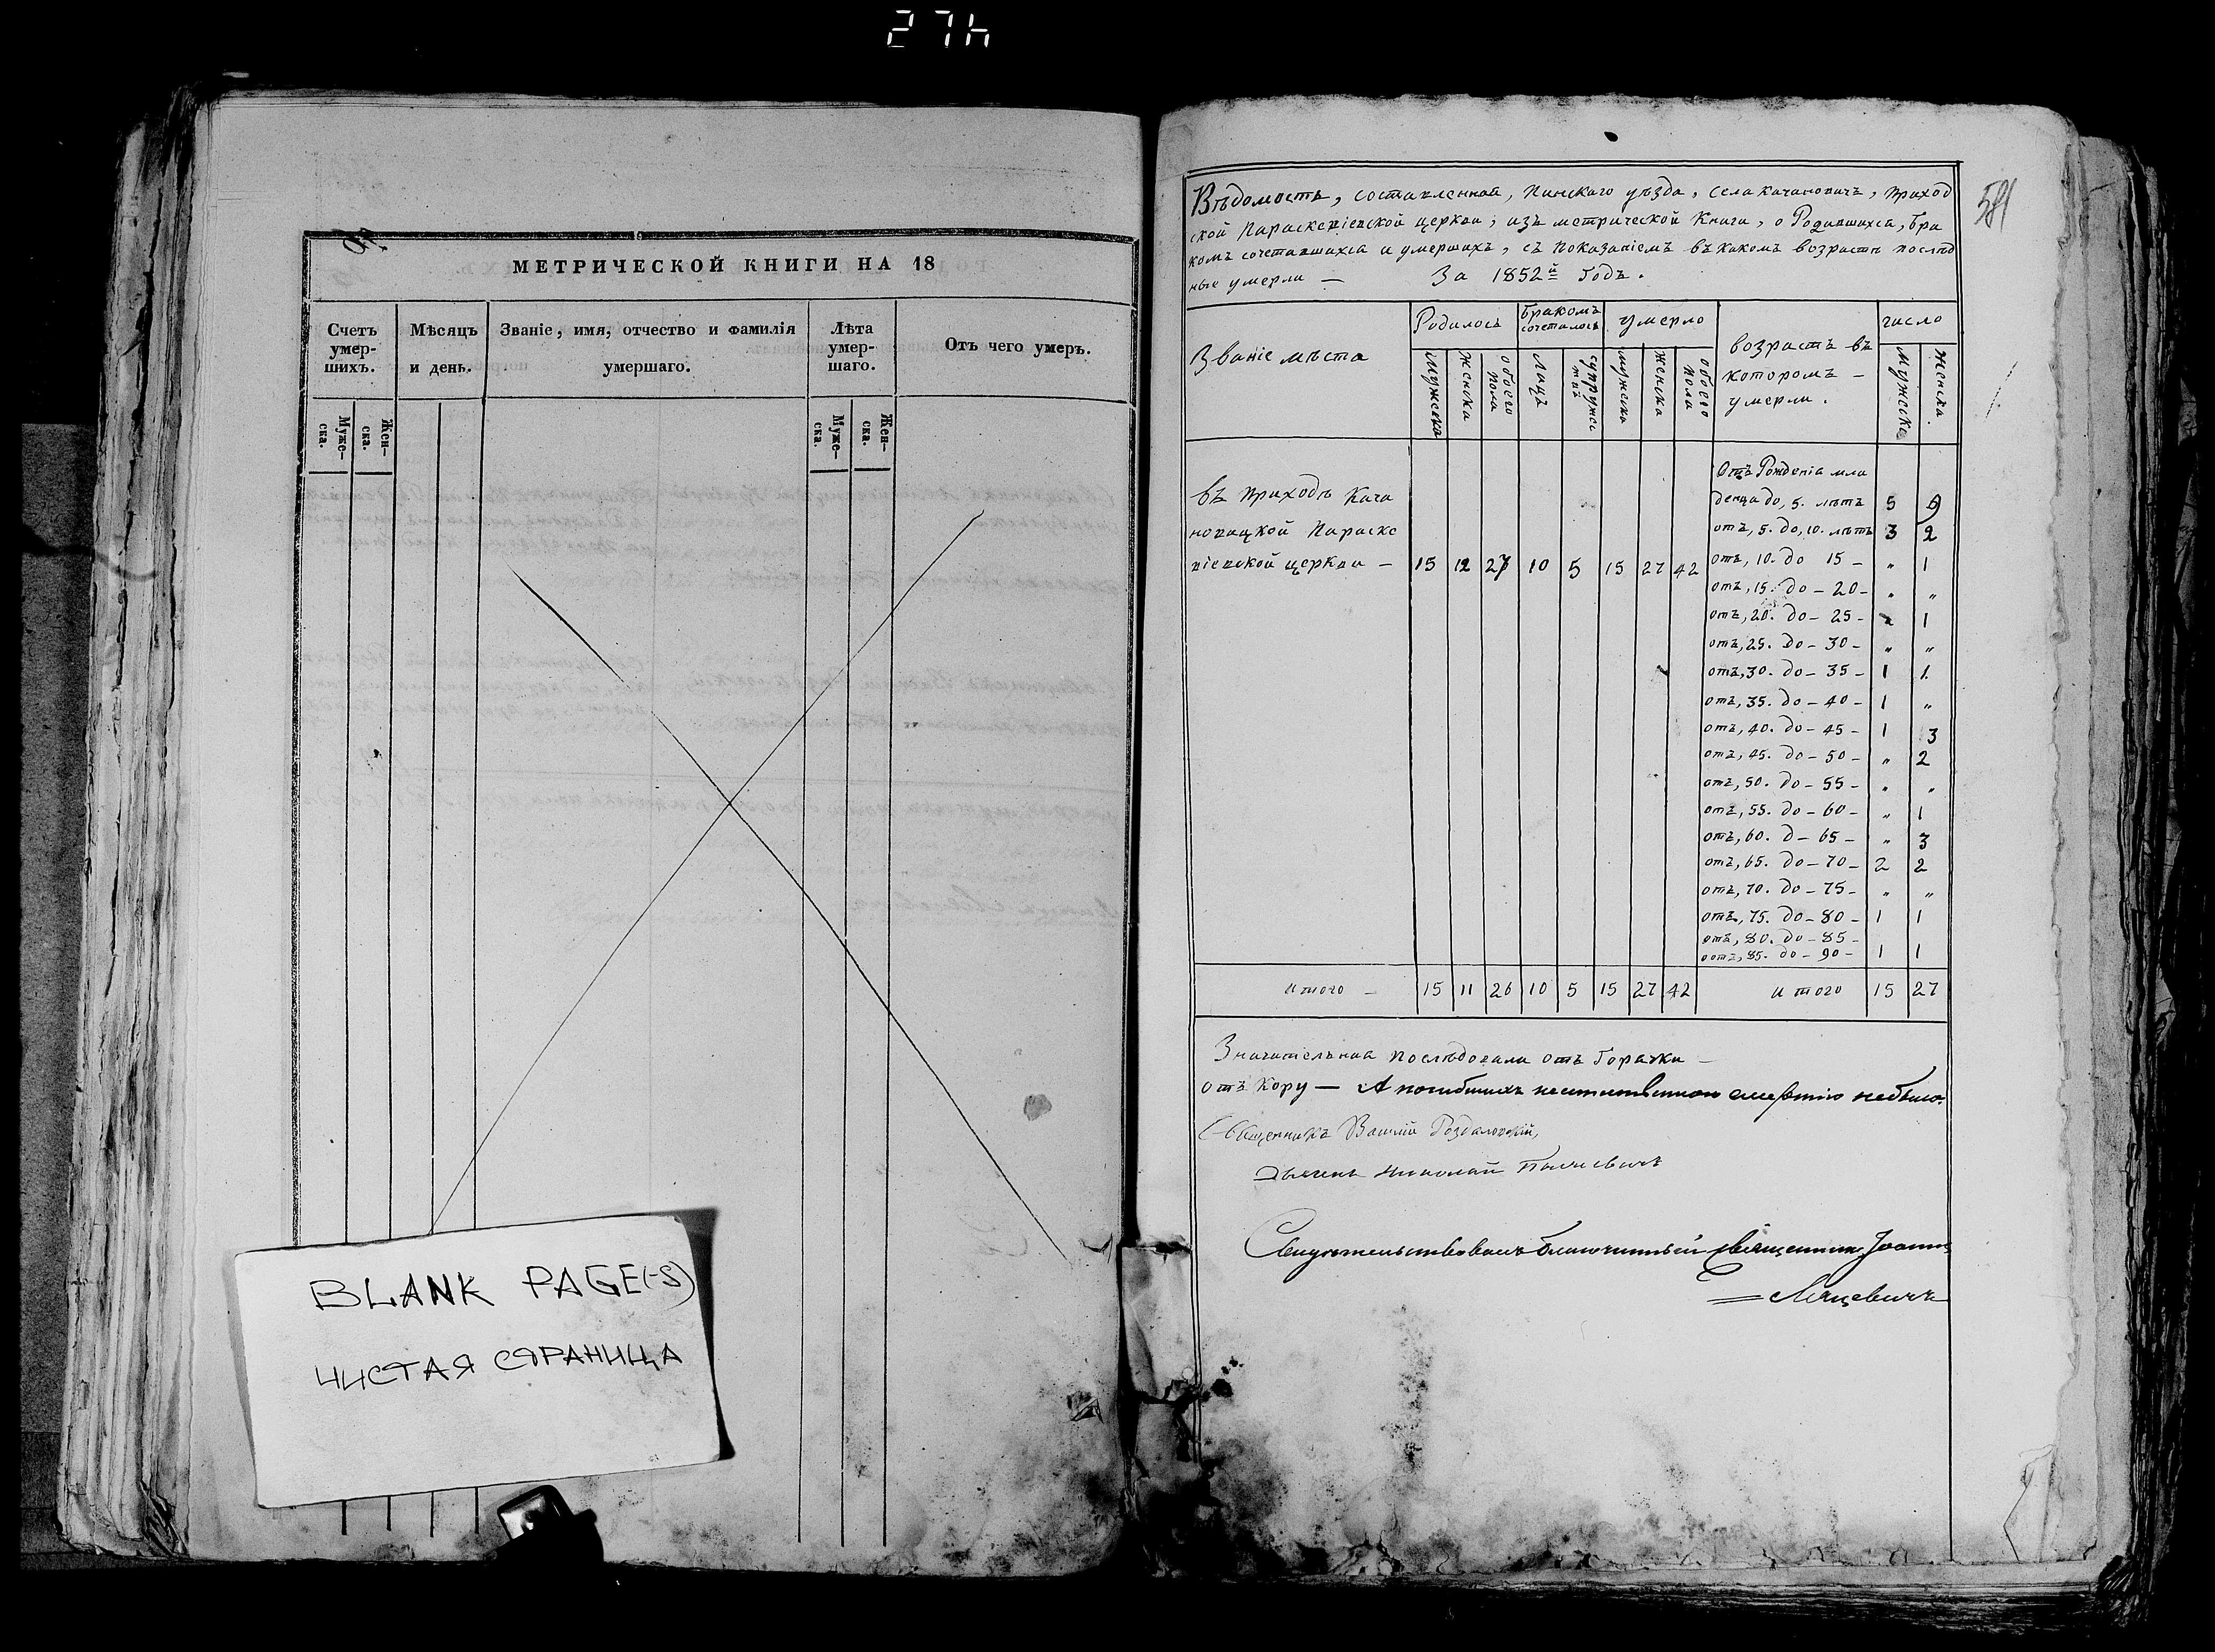 27h
МЕТРИЧЕСКОЙ КНИГИ НА 18
Счетъ умер- шихъ.
Мѣсяцъ и день.
Званіе, имя, отчество и фамилія умершаго.
Лѣта умер- шаго.
Отъ чего умеръ.
Муже- ска.
Жен- ска.
Муже- ска.
Жен- ска.
BLANK PAGE(-S)
ЧИСТАЯ СТРАНИЦА
581
Вѣдомость, составленная, Пинскаго уѣзда, села Качановичъ, приход
ской Параскевіевской церкви, изъ метрической Книги, о Родившихся, бра
комъ сочетавшихся и умершихъ, съ показаніемъ въ какомъ возрастѣ послѣд
ные умерли — За 1852й годъ.
Званіе мѣста
Родилось
бракомъ сочеталось
умерло
возрастъ въ которомъ — умерли.
число
Мужеска
Женска
обоего пола
Лицъ
супружествъ
мужеска
женска
обоего пола
Мужеска
Женска
Отъ Рожденія мла
денца до, 5. лѣтъ 5 9
отъ, 5. до, 10. лѣтъ 3 2
въ приходѣ Кача
новицкой Параске
віевской церкви — 15 12 27 10 5 15 27 42
отъ, 10. до 15 — " 1
отъ, 15. до — 20 — " "
отъ, 20. до — 25 — " 1
отъ, 25. до — 30 — " "
отъ, 30. до — 35 — 1 1
отъ, 35. до — 40 — 1 "
отъ, 40. до — 45 — 1 3
отъ, 45. до — 50 — " 2
отъ, 50. до — 55 — " "
отъ, 55. до — 60 — " 1
отъ, 60. д — 65 — " 3
отъ, 65. до — 70 — 2 2
отъ, 70. до — 75 — " "
отъ, 75. до — 80 — 1 1
отъ, 80. до — 85 —
отъ, 85. до — 90 — 1 1
Итого — 15 11 26 10 5 15 27 42 Итого 15 27
Значительная послѣдовали отъ Горячки —
отъ Кору — А погибшихъ неестественною смертію небыло.
Священникъ Василій
Дьячекъ Николай
Свидѣтельствовалъ благочинный священникъ Іоаннъ
Лячевичъ